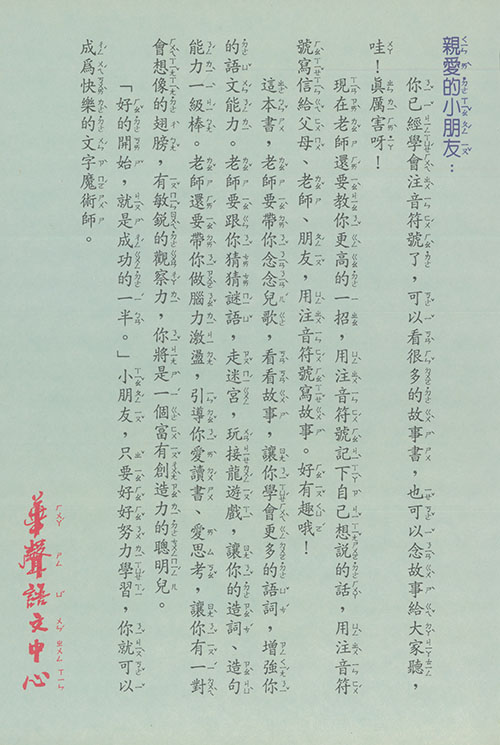 親愛的小朋友：
你已經學會注音符號了，可以看很多的故事書，也可以念故事給大家聽，
哇！眞厲害呀！
現在老師還要教你更高的一招，用注音符號記下自己想說的話，用注音符
號寫信給父母、老師、朋友，用注音符號寫故事。好有趣哦！
這本書，老師要帶你念念兒歌，看看故事，讓你學會更多的語詞，增強你
的語文能力。老師要跟你猜猜謎語，走迷宮，玩接龍遊戲，讓你的造詞、造句
能力一級棒。老師還要帶你做腦力激盪，引導你愛讀書、愛思考，讓你有一對
會想像的翅膀，有敏銳的觀察力，你將是一個富有創造力的聰明兒。
「好的開始，就是成功的一半。」小朋友，只要好好努力學習，你就可以
成爲快樂的文字魔術師。
華聲語文中心